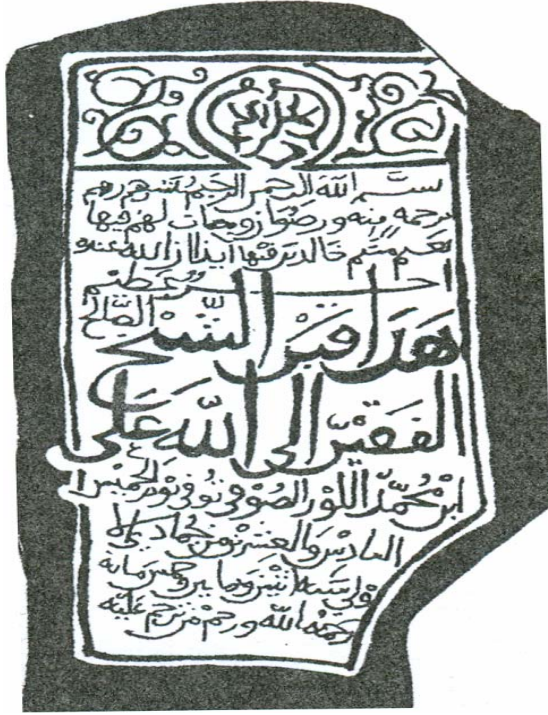 بسم الله الرحمن الرحيم يبشرهم ربهم
برحمة منه ورضوان وجنات لهم فيها
نعيم مقيم خالدين فيها ابدا ان الله عنده
اجر عظيم
هذا قبر الشيخ الصالح
الفقير الى الله على
ابن محمد اللور الصوفى توفى يوم الخميس
السادس والعشرين من جمادى الا
ولى سنة اثنين وثمانين وخمس مائة
رحمة الله ورحم من ترحم عليه